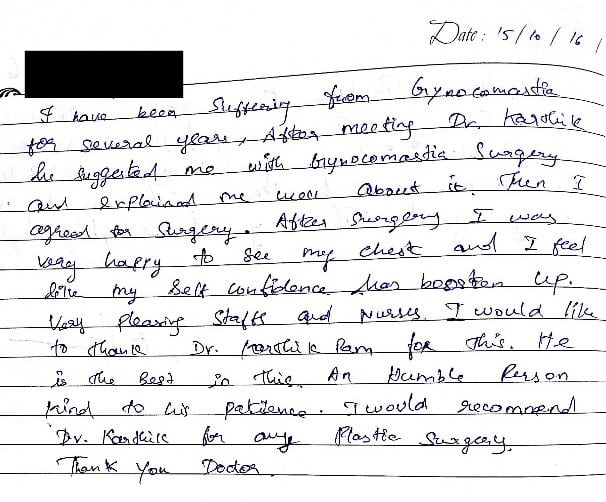 Date: 15/10/16/
I have been Suffering from Gynocomastia
for several years, After meeting Dr. Karthik
he suggested me with Gynocomastia Surgery
and explained me more about it. Then I
agreed for Surgery. After Surgery I was
very happy to see my chest and I feel
like my Self confidence has boosten up.
Very Pleasing Staffs and Nurses. I would like
to thank Dr. Karthik Ram for this. He
is the Best in this. An Humble Person
kind to his patience. I would recommend
Dr. Karthik for any Plastic Surgery.
Thank You Doctor.